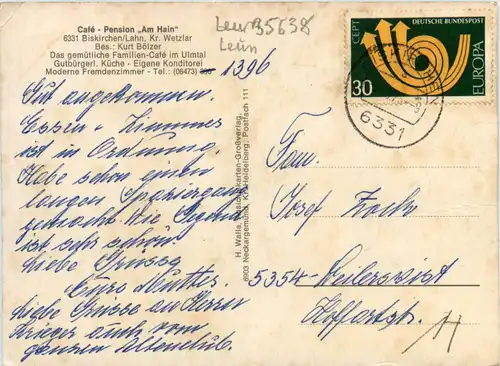 Café - Pension „Am Hain"
6331 Biskirchen/Lahn, Kr. Wetzlar
Bes.: Kurt Bölzer
Das gemütliche Familien-Café im Ulmtal
Gutbürgerl. Küche - Eigene Konditorei
Moderne Fremdenzimmer - Tel.: (06473)
1396
Gut angekommen.
Essen + Zimmer
ist in Ordnung.
Habe schon einen
langen Spaziergang
gemacht. Die Gegend
ist sehr schön
Liebe Grüsse
Eure Mutter.
Liebe Grüsse an Herrn
Krieger auch vom
ganzen Altenclub.
H. Walla, Ansichtskarten-Großverlag,
6903 Neckargemünd, Kr. Heidelberg; Postfach 111
35638
Leun
CEPT
DEUTSCHE BUNDESPOST
EUROPA
30
6331
Fam.
Josef
5354 - Weilerswist